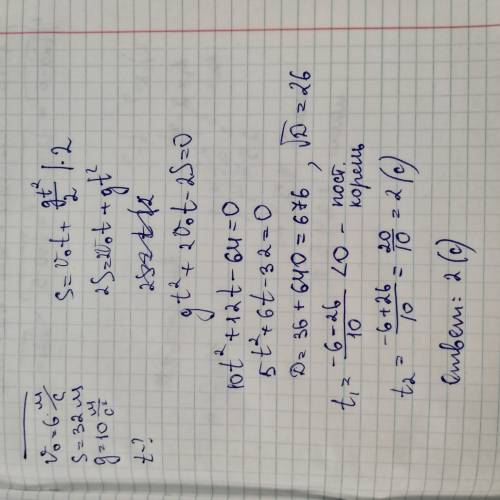 v₀=6 м/с
S=32м
g=10 м/с²
t-?
S=v₀t+gt²/2 |·2
2S=2v₀t+gt²
gt²+2v₀t-2S=0
10t²+12t-64=0
5t²+6t-32=0
D=36+640=676, √D=26
t₁=(-6-26)/10 <0 - пост. корень
t₂=(-6+26)/10=20/10=2(с)
Ответ: 2(с)